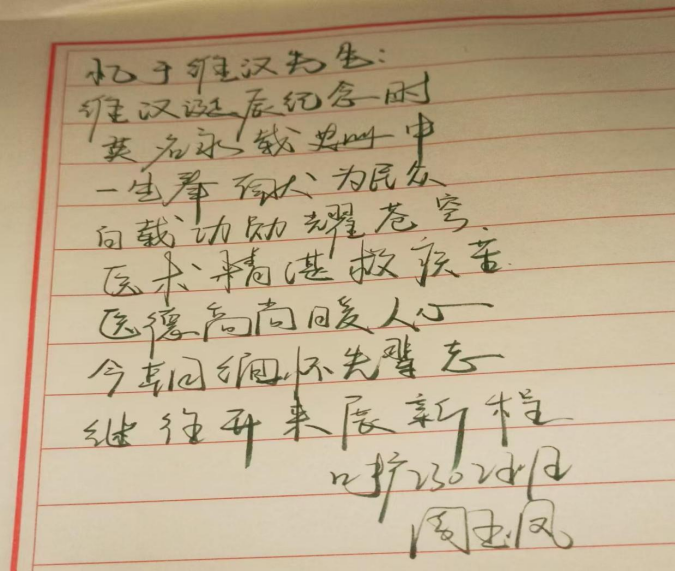 忆于维汉先生:
维汉诞辰纪念时
英名永载史册中
一生奉献为民众
百载功勋耀苍穹.
医术精湛救疾苦
医德高尚暖人心
今朝缅怀先辈志
继往开来展新程
口护2302班
周玉凤